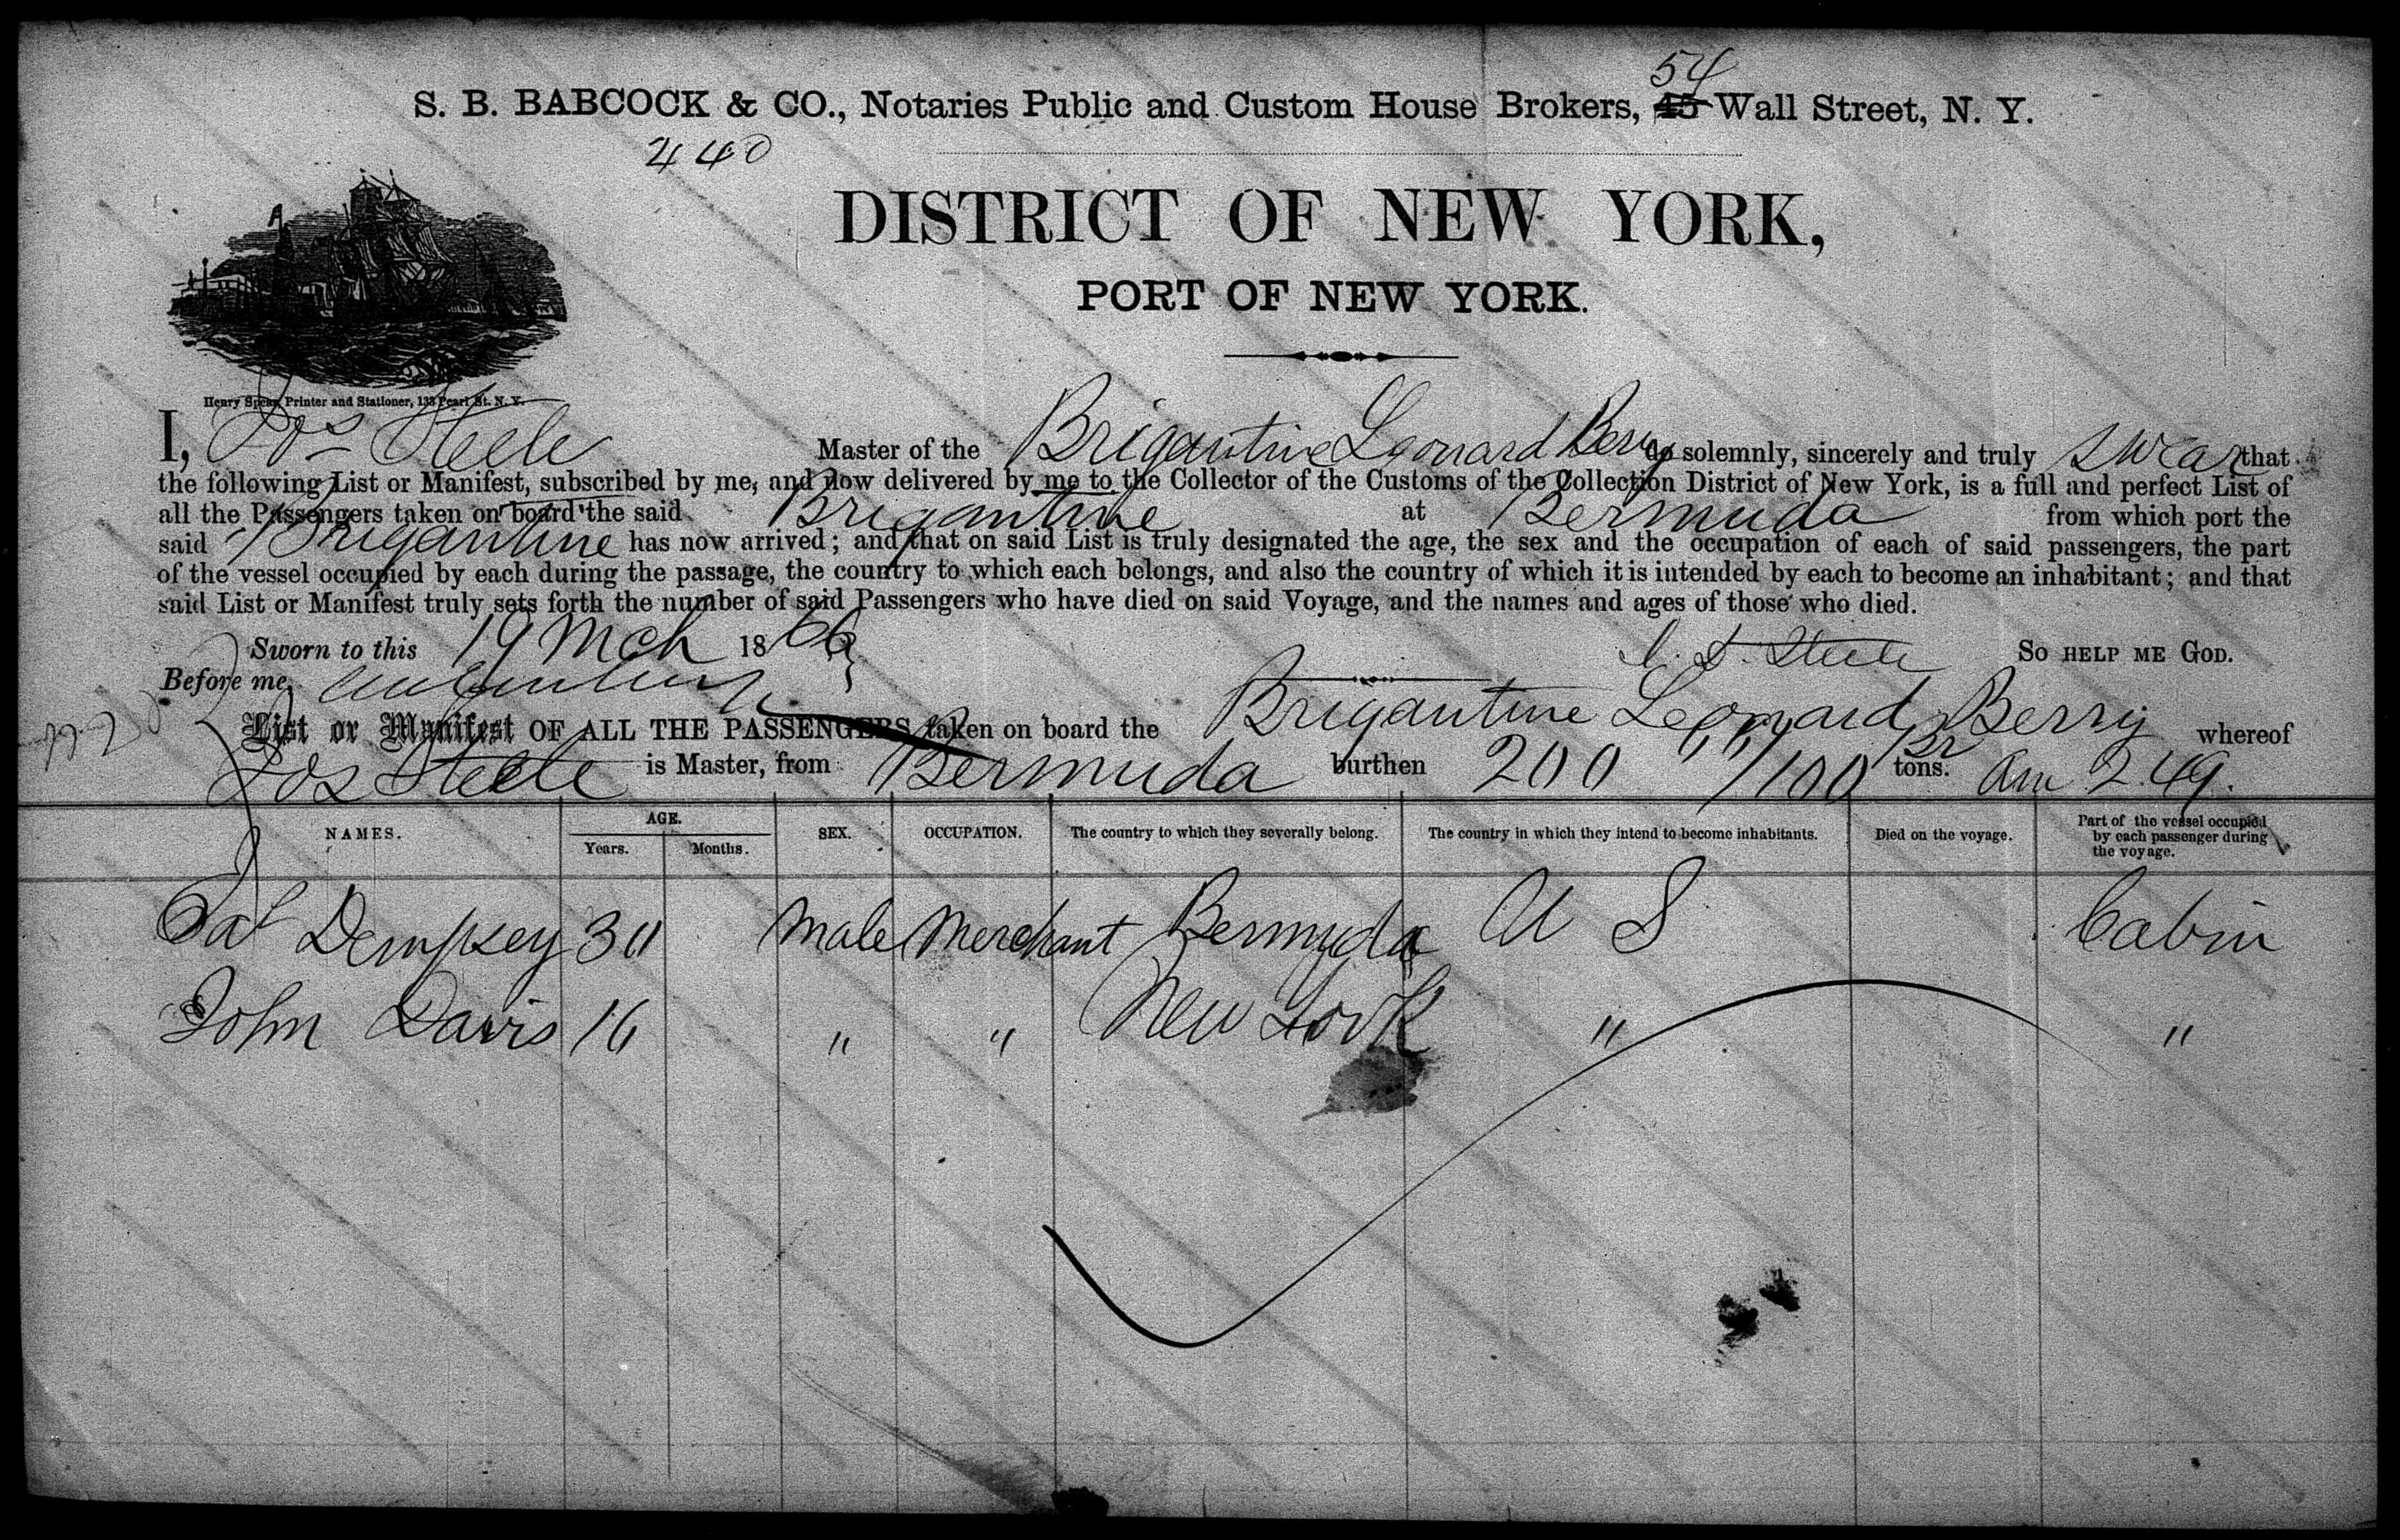 54
S. B. BABCOCK & CO., Notaries Public and Custom House Brokers, 45 Wall Street, N. Y.
440
DISTRICT OF NEW YORK,
PORT OF NEW YORK.
Henry Spear, Printer and Stationer, 133 Pearl St. N. Y.
I, Jos Steele Master of the Brigantine Leonard Berry do solemnly, sincerely and truly swear that
the following List or Manifest, subscribed by me, and now delivered by me to the Collector of the Customs of the Collection District of New York, is a full and perfect List of
all the Passengers taken on board the said Brigantine at Bermuda from which port the
said Brigantine has now arrived; and that on said List is truly designated the age, the sex and the occupation of each of said passengers, the part
of the vessel occupied by each during the passage, the country to which each belongs, and also the country of which it is intended by each to become an inhabitant; and that
said List or Manifest truly sets forth the number of said Passengers who have died on said Voyage, and the names and ages of those who died.
Sworn to this 19 Mch 1866 Steele SO HELP ME GOD.
Before me,
List or Manifest OF ALL THE PASSENGERS taken on board the Brigantine Leonard Berry whereof
Jos Steele is Master, from Bermuda burthen 200 " /100 tons. Br Am 249.
NAMES. AGE. Years. Months. SEX. OCCUPATION. The country to which they severally belong. The country in which they intend to become inhabitants. Died on the voyage. Part of the vessel occupied by each passenger during the voyage.
Dempsey 30 Male Merchant Bermuda U S Cabin
John Davis 16 " " New York " "